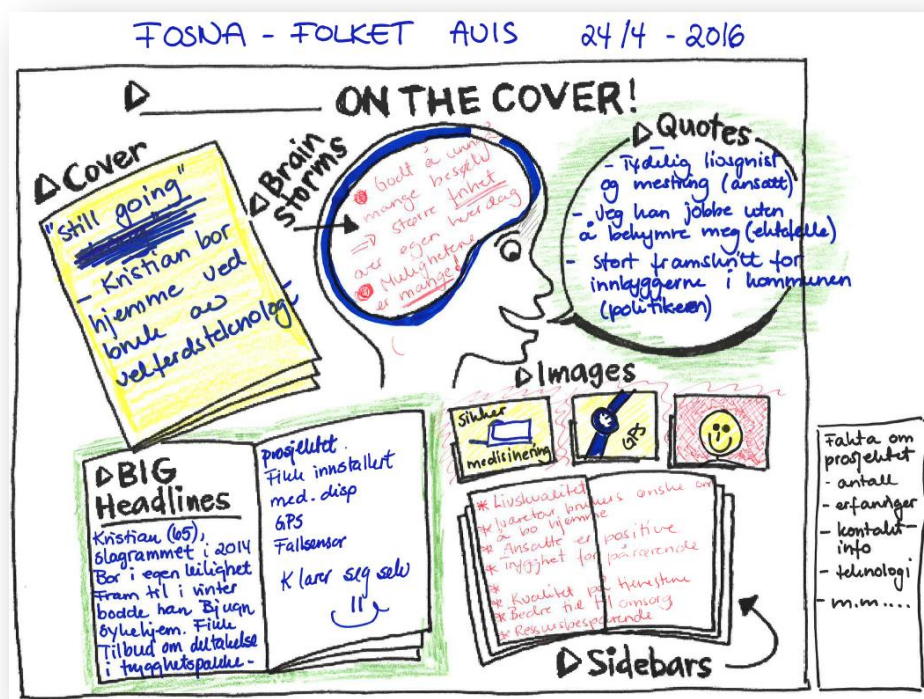 FOSNA - FOLKET AVIS 24/4 - 2016
ON THE COVER!
Cover
"still going"
- Kristian bor
hjemme ved
bruk av
velferdsteknologi
Brain
storms
Godt å kunne
mange besøk
=> større frihet
over egen hverdag
Mulighetene
er mange!
Quotes
- Tydelig livsgnist
og mestring (ansatt)
- Jeg kan jobbe uten
å bekymre meg (ektefelle)
- Stort framskritt for
innbyggerne i kommunen
(politikeren)
Images
sikker
medisinering
GPS
BIG
Headlines
Kristian (65),
slagrammet i 2014
Bor i egen leilighet
Fram til i vinter
bodde han Bjugn
sykehjem. Fikk
Tilbud om deltakelse
i trygghetspakke-
prosjektet.
Fikk innstallert
med. disp
GPS
Fallsensor
Klarer seg selv
* Livskvalitet
* Ivaretar brukers ønske om
å bo hjemme
* Ansatte er positive
* trygghet for pårørende
* Kvalitet på tjenestene
* Bedre tid til omsorg
* Ressursbesparende
Sidebars
Fakta om
prosjektet
- antall
- erfaringer
- kontakt
info
- teknologi
- m.m....